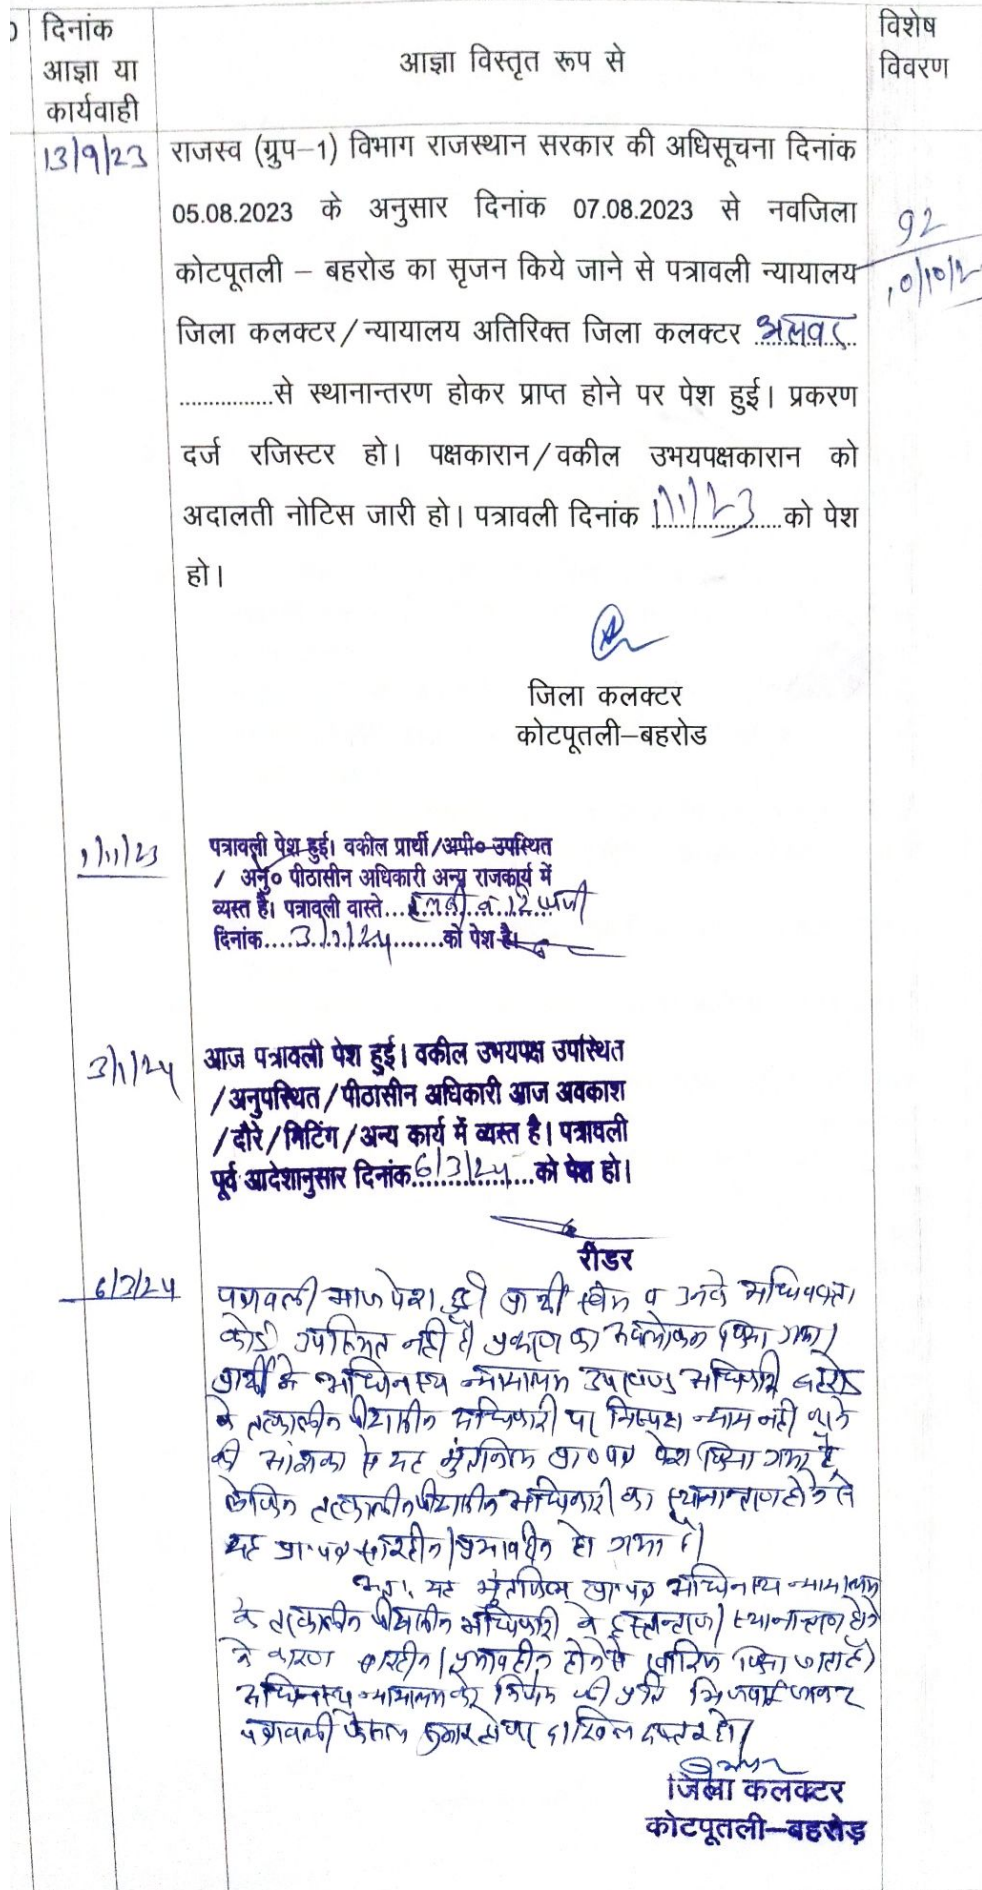 दिनांक
आज्ञा या
कार्यवाही
आज्ञा विस्तृत रूप से
विशेष
विवरण
13/9/23
राजस्व (ग्रुप–1) विभाग राजस्थान सरकार की अधिसूचना दिनांक
05.08.2023 के अनुसार दिनांक 07.08.2023 से नवजिला
कोटपूतली – बहरोड का सृजन किये जाने से पत्रावली न्यायालय
जिला कलक्टर/न्यायालय अतिरिक्त जिला कलक्टर अलवर
................से स्थानान्तरण होकर प्राप्त होने पर पेश हुई। प्रकरण
दर्ज रजिस्टर हो। पक्षकारान/वकील उभयपक्षकारान को
अदालती नोटिस जारी हो। पत्रावली दिनांक 1/11/23 को पेश
हो।
92
10/10/2
जिला कलक्टर
कोटपूतली–बहरोड
1/11/23
पत्रावली पेश हुई। वकील प्रार्थी/अपी० उपस्थित
/ अनु० पीठासीन अधिकारी अन्य राजकार्य में
व्यस्त है। पत्रावली वास्ते....
दिनांक....3/1/24........को पेश है।
3/1/24
आज पत्रावली पेश हुई। वकील उभयपक्ष उपस्थित
/अनुपस्थित/पीठासीन अधिकारी आज अवकाश
/दौरे/मिटिंग/अन्य कार्य में व्यस्त है। पत्रावली
पूर्व आदेशानुसार दिनांक 6/3/24 को पेश हो।
रीडर
6/3/24
पत्रावली आज पेश हुई। प्रार्थी स्वंय व उनके अधिवक्ता
कोई उपस्थित नहीं है। प्रकरण का अवलोकन किया गया।
प्रार्थी के अधिनस्थ न्यायालय उपखण्ड अधिकारी बहरोड
के तत्कालीन पीठासीन अधिकारी पर निष्पक्ष न्याय नहीं करने
की आंशका से यह मुंतकिल प्रा०पत्र पेश किया गया है,
लेकिन तत्कालीन पीठासीन अधिकारी का स्थानान्तरण होने से
यह प्रा०पत्र सारहीन/प्रभावहीन हो गया है।
अतः यह मुंतकिल प्रा०पत्र अधिनस्थ न्यायालय
के तत्कालीन पीठासीन अधिकारी के हस्तान्तरण/स्थानान्तरण होने
के कारण सारहीन/प्रभावहीन होने से खारिज किया जाता है।
अधिनस्थ न्यायालय को निर्णय की प्रति भिजवाई जाकर
पत्रावली फैसल शुमार होकर दाखिल दफ्तर हो।
जिला कलक्टर
कोटपूतली–बहरोड़